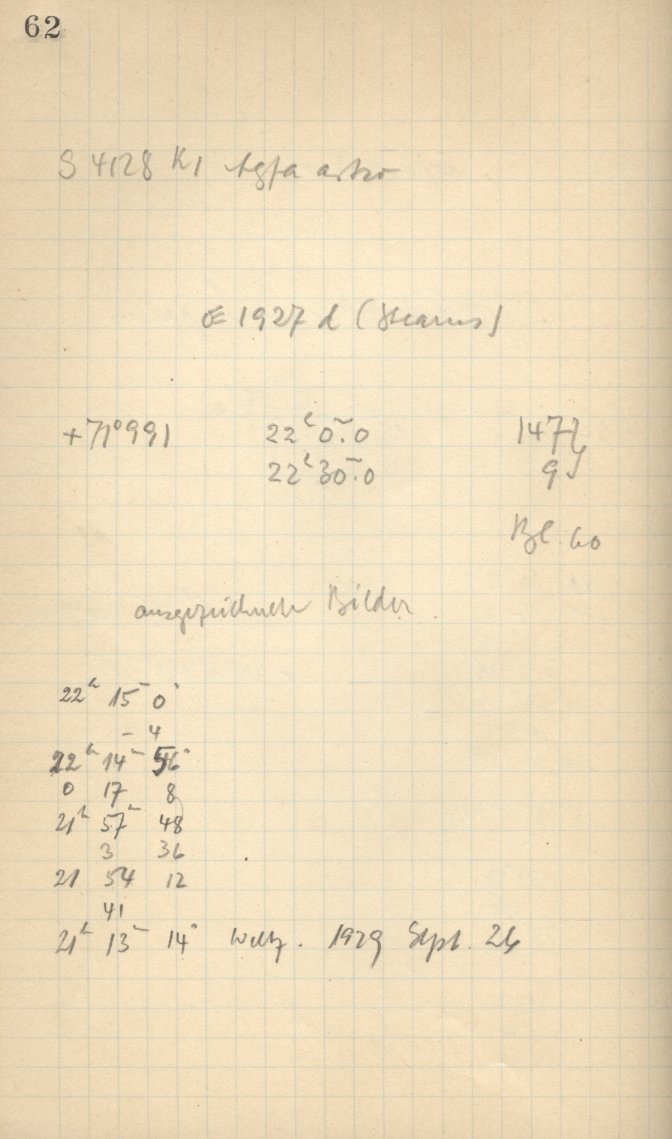 62
S 4128 K1 Agfa astro
1927 d (Stearns)
+71°991 22h 0m.0 147
22h 30m.0 9
Bl. 60
ausgezeichnete Bilder.
22h 15m 0s
- 4
22h 14m 56s
0 17 8
21h 57m 48
3 36
21 54 12
41
21h 13m 14s Weltz. 1929 Sept. 26